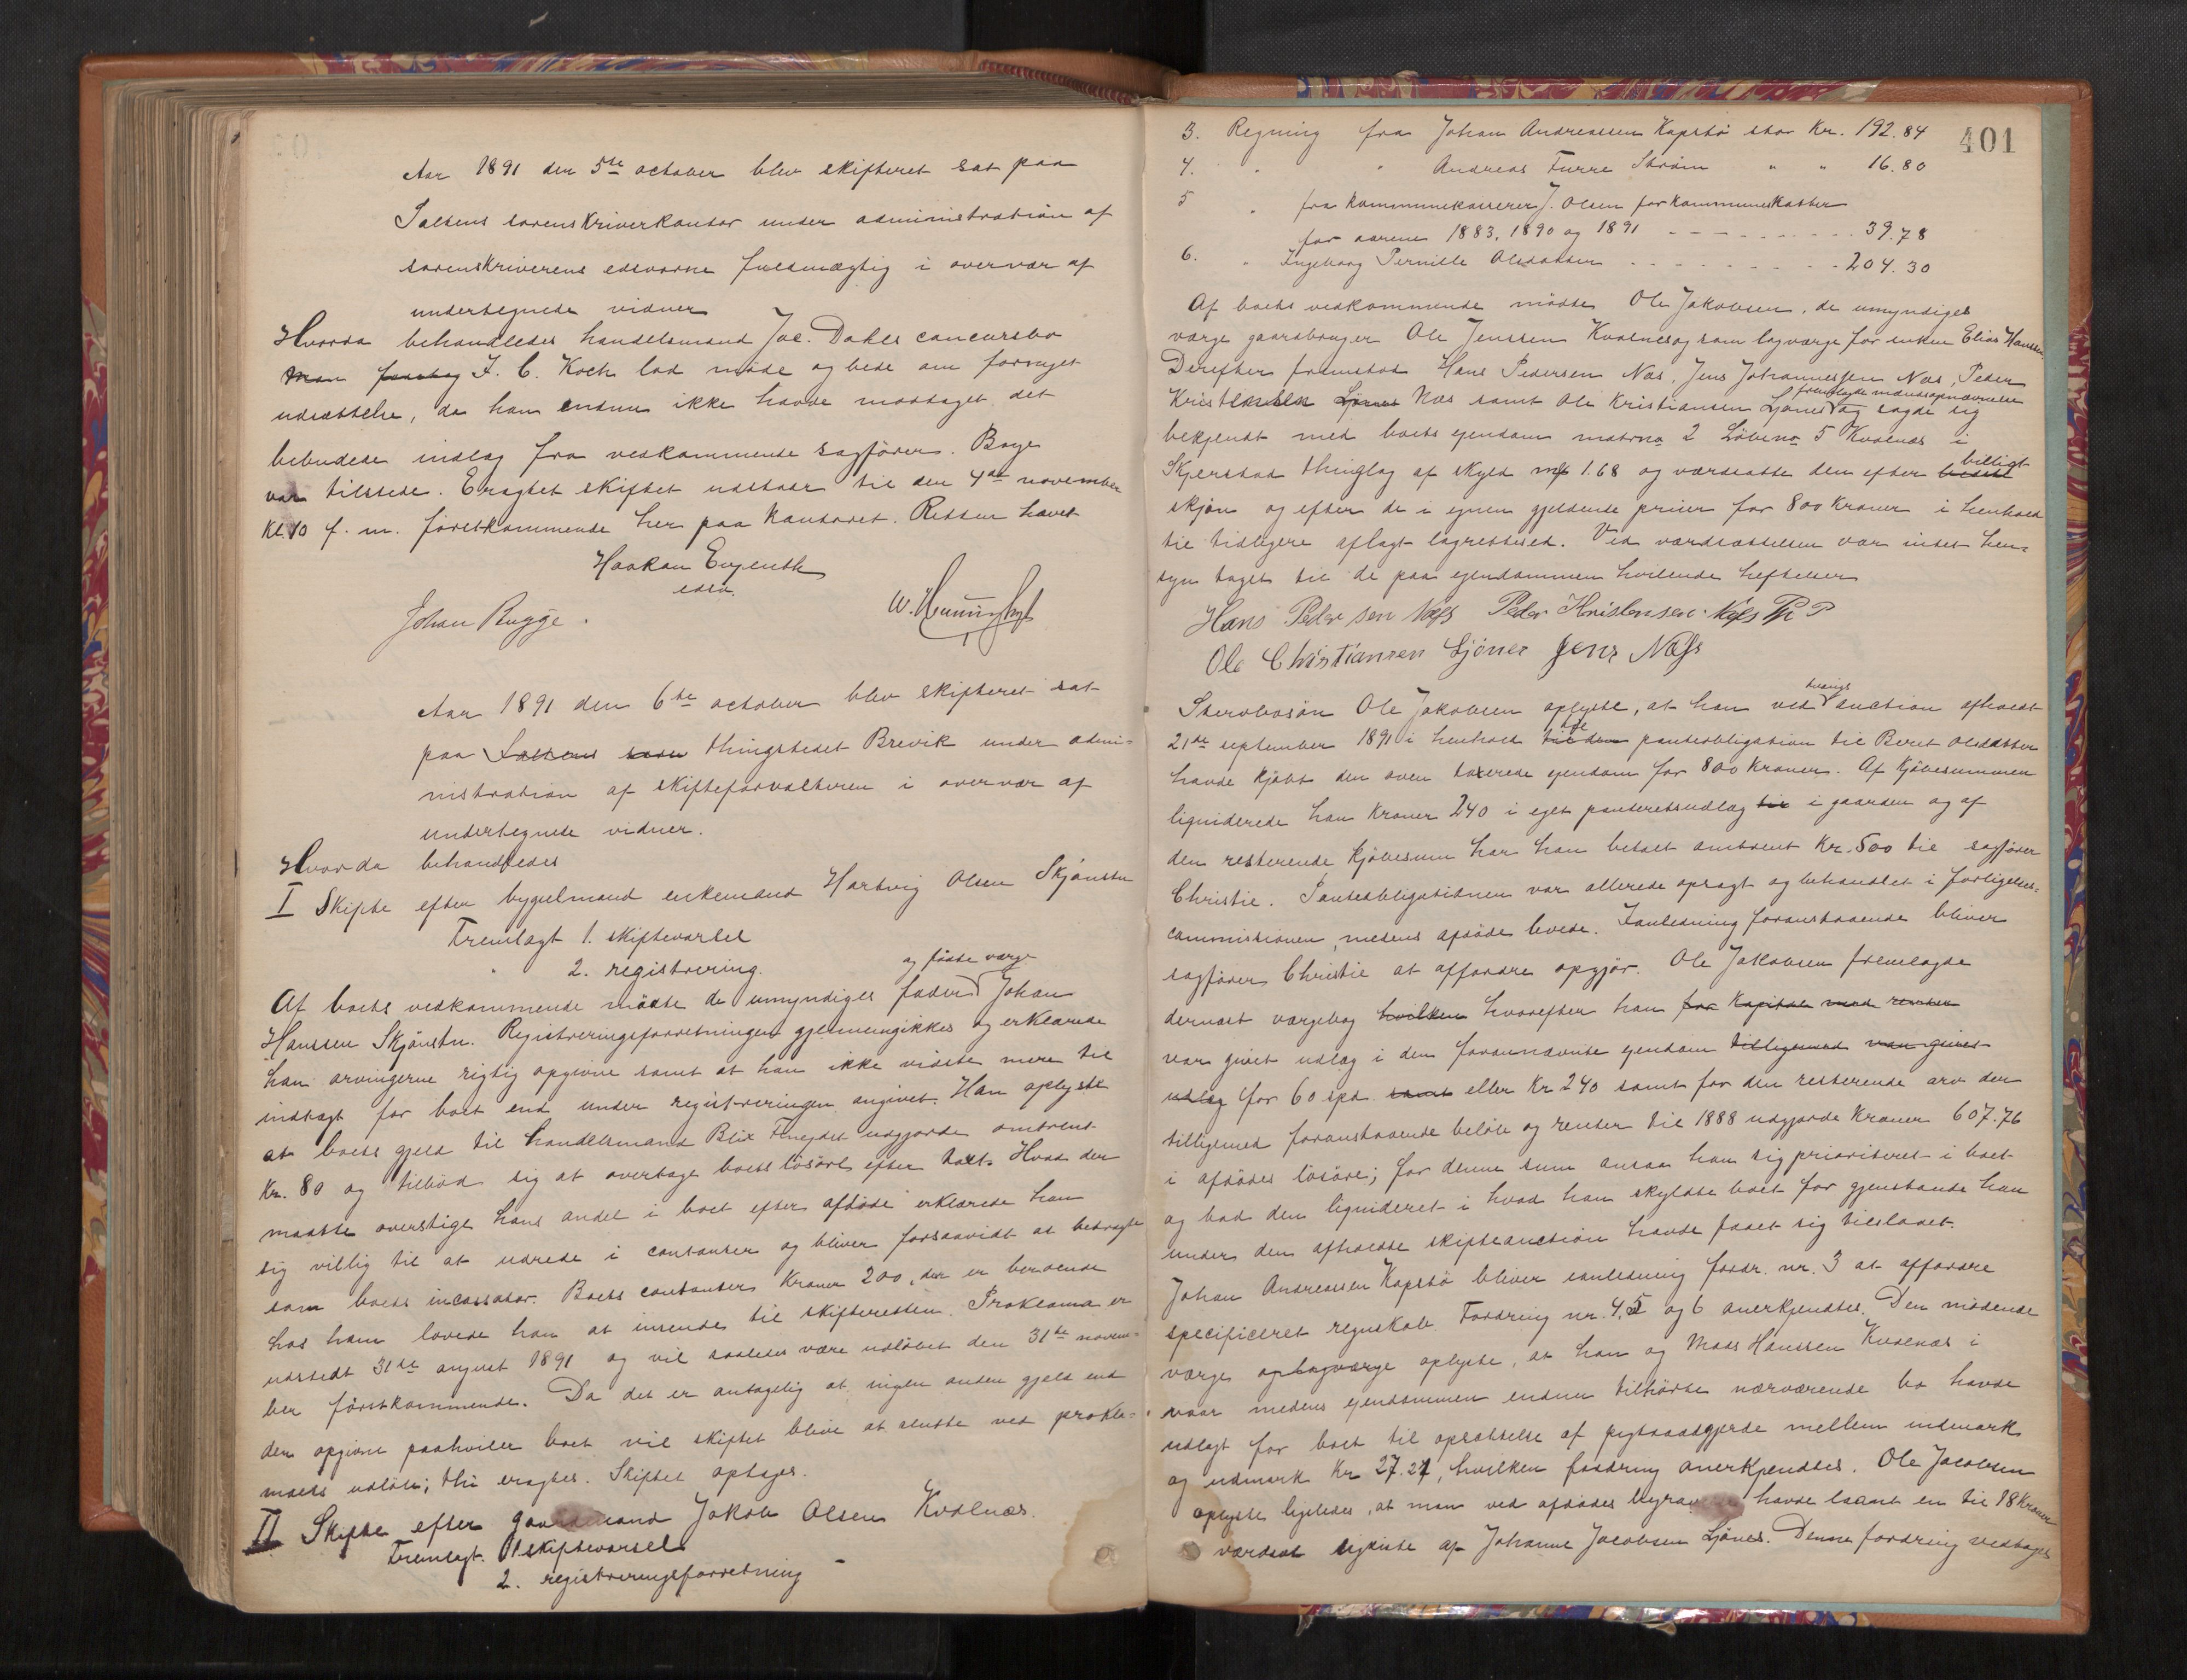 Aar 1891 den 5te october blev skifteret sat paa
Saltens sorenskriverkontor under administration af
sorenskriverens edsvorne fuldmægtig i overvær af
undertegnede vidner
Hvorda behandledes handelsmand Joe. Dahls concursbo
F. C. Koch lod møde og bede om fornyet
udsættelse, da han endnu ikke havde modtaget det
bebudede indlæg fra vedkommende sagfører. Boye
var tilstede. Eragtet skiftet udstaar til den 4de november
kl. 10 f. m. førstkommende her paa kontoret. Retten hævet
Haakan Evjenth
edsv.
Johan Bugge.
Aar 1891 den 6te october blev skifteret sat
paa Saltens soren thingstedet Brevik under admi-
nistration af skifteforvalteren i overvær af
undertegnede vidner.
Hvorda behandledes
I Skifte efter bygselmand enkemand Hartvig Olsen Skjønstu
Fremlagt 1. skiftevarsel
" 2. registrering.
og fødte værge
Af boets vedkommende mødte de umyndiges fader Johan
Hanssen Skjønstu. Registreringsforretningen gjennemgikkes og erklærede
han arvingerne rigtig opgivne samt at han ikke vidste mere til
indtægt for boet end under registreringen angivet. Han oplyste
at boets gjeld til handelsmand Blix udgjorde omtrent
Kr. 80 og tilbød sig at overtage boets løsøre efter taxt. Hvad der
maatte overstige hans andel i boet efter afdøde erklærede han
sig villig til at udrede i contanter og bliver forsaavidt at betragte
som boets incassator. Boets contanter Kroner 200, der er beroende
hos ham lovede han at insende til skifteretten. Proklama er
udstedt 31te august 1891 og vil saaledes være udløbet den 31te novem-
ber førstkommende. Da det er antagelig at ingen anden gjeld end
den opgivne paahviler boet vil skiftet blive at slutte ved prokla-
maets udløb; thi eragtes. Skiftet optages.
II Skifte efter gaardmand Jakob Olsen Kvalnæs.
Fremlagt. 1 skiftevarsel
2. registreringsforretning -
401
3. Regning fra Johan Andreassen Kapstø stor Kr. 192.84
4. " " Andreas Furre Strøm " " 16.80
5 " fra kommunekasserer J. Olsen for kommuneskatter
for aarene 1883, 1890 og 1891 - - - - 39.78
6. " Ingeborg Pernille Olsdatter - - - - 204.30
Af boets vedkommende mødte Ole Jakobsen, de umyndiges
værge gaardbruger Ole Jenssen Kvalnes og som lagværge for enken Elias Hanssen
Derefter fremstod Hans Pedersen Næs, Jens Johannessen Næs, Peder
fremlagde mændsopnævnelse
Kristensen Ljønes Næs samt Ole Kristiansen Ljønes og sagde sig
bekjendt med boets eiendom matrno 2 Løbeno 5 Kvalnæs i
billigt
Skjerstad thinglag af skyld mk 1.68 og værdsatte den efter bedste
skjøn og efter de i egnen gjeldende priser for 800 kroner i henhold
til tidligere aflagt lagretteed. Ved værdsættelsen var intet hen-
syn taget til de paa eiendommen hvilende heftelser
Hans Pedersen Næss Peder Kristensen Næss P
Ole Christiansen Ljønes Jens Næss
tvangs
Stervbosøn Ole Jakobsen oplyste, at han ved auction afholdt
21de september 1891 i henhold til den panteobligation til Beret Olsdatter
havde kjøbt den oven taxerede eiendom for 800 kroner. Af kjøbesummen
liqviderede han kroner 240 i eget panteretsudlæg til i gaarden og af
den resterende kjøbesum har han betalt omtrent Kr. 500 til sagfører
Christie. Panteobligationen var allerede opsagt og behandlet i forligelses-
commissionen, medens afdøde levede. I anledning foranstaaende bliver
sagfører Christie at affordre opgjør. Ole Jakobsen fremlagde
dernæst værgebog hvilken hvorefter han for kapital med renter
var givet udlæg i den forannævnte eiendom tilligemed var givet
udlæg for 60 spd samt eller Kr 240 samt for den resterende arv der
tilligemed foranstaaende beløb og renter til 1888 udgjorde Kroner 607.76
i afdødes løsøre; for denne sum ansaa han sig prioriteret i boet
og bad den liqvideret i hvad han skyldte boet for gjenstande han
under den afholdte skifteauction havde faaet sig tilslaaet.
Johan Andreassen Kapstø bliver i anledning fordr. nr. 3 at affordre
specificeret regnskab. Fordring nr. 4, 5 og 6 anerkjendtes. Den mødende
værge og lagværge oplyste, at han og Mads Hanssen Kvalnæs i
vaar medens eiendommen endnu tilhørte nærværende bo havde
udlagt for boet til opsættelse af pigtraadgjerde mellem indmark
og udmark Kr 27.27, hvilken fordring anerkjendtes. Ole Jacobsen
oplyste ligeledes, at man ved afdødes begravelse havde laant en til 18 Kroner
værdsat ligkiste af Johanne Jacobsen Ljønes. Denne fordring vedtoges